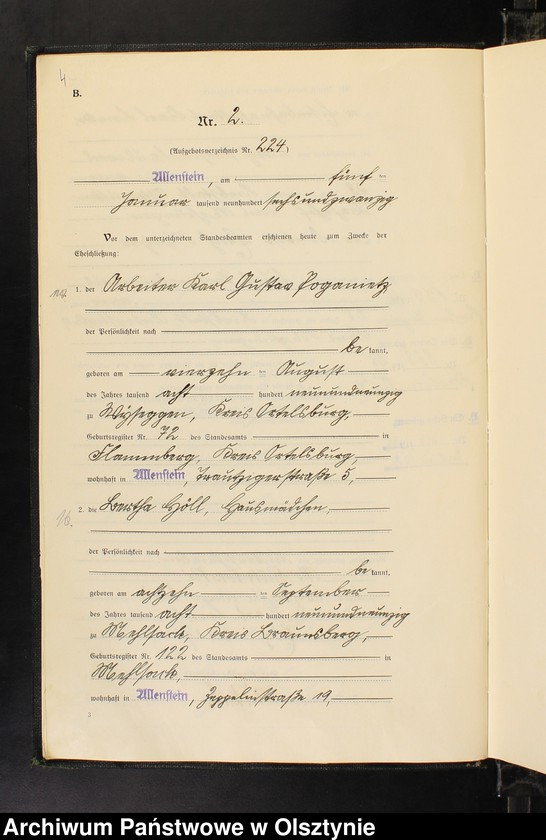 4
B.
Nr. 2.
(Aufgebotsverzeichnis Nr. 224)
Allenstein, am fünf ten
Januar tausend neunhundert sechsundzwanzig
Vor dem unterzeichneten Standesbeamten erschienen heute zum Zwecke der
Eheschließung:
1. der Arbeiter Karl Gustav Poganietz
der Persönlichkeit nach
be kannt,
geboren am vierzehn ten August
des Jahres tausend acht hundert neunundneunzig
zu Wyseggen, Kreis Ortelsburg,
Geburtsregister Nr. 72 des Standesamts in
Flammberg, Kreis Ortelsburg,
wohnhaft in Allenstein, Trautzigerstraße 5,
2. die Bertha Höll, Hausmädchen,
16.
der Persönlichkeit nach
be kannt,
geboren am achtzehn ten September
des Jahres tausend acht hundert neunundneunzig
zu Mehlsack, Kreis Braunsberg,
Geburtsregister Nr. 122 des Standesamts in
Mehlsack,
wohnhaft in Allenstein, Zeppelinstraße 19,
3
Archiwum Państwowe w Olsztynie